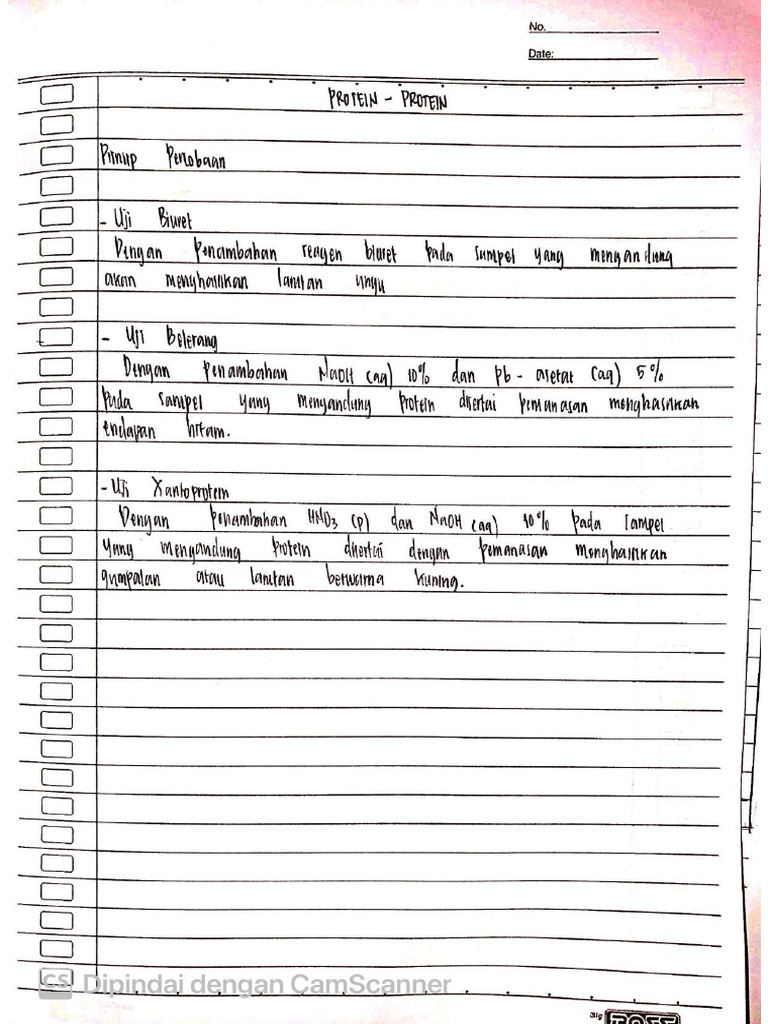 No.
Date:
PROTEIN - PROTEIN
Prinsip Percobaan
- Uji Biuret
Dengan penambahan reagen biuret pada sampel yang mengandung
akan menghasilkan larutan ungu
- Uji Belerang
Dengan penambahan NaOH (aq) 10% dan Pb - asetat (aq) 5%
pada sampel yang mengandung protein disertai pemanasan menghasilkan
endapan hitam.
- Uji Xantoprotein
Dengan penambahan HNO3 (p) dan NaOH (aq) 10% pada sampel
yang mengandung protein disertai dengan pemanasan menghasilkan
gumpalan atau larutan berwarna kuning.
CS Dipindai dengan CamScanner